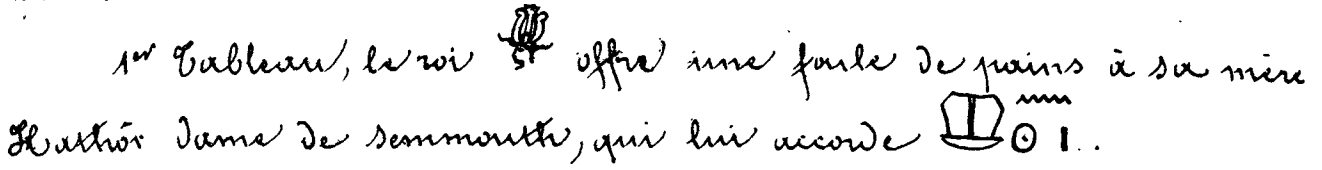 1er Tableau, le roi offre une foule de pains à sa mère
Hathôr dame de Senmouth, qui lui accorde